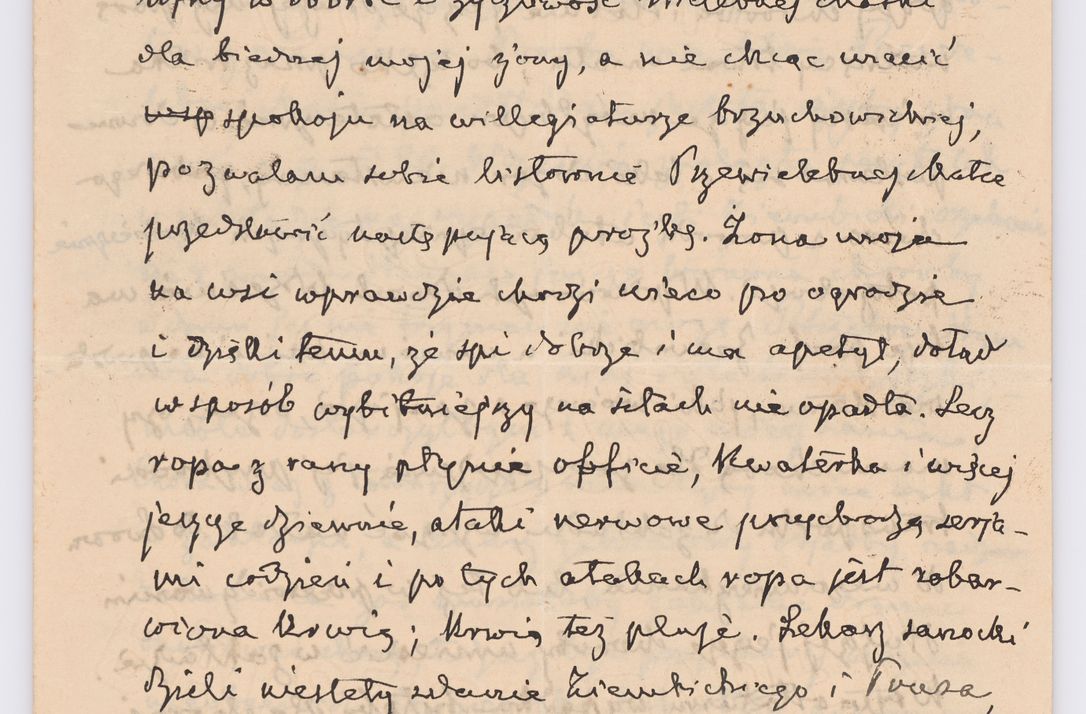 dla biednej mojej żony, a nie chcąc mącić
wsp spokoju na willegiaturze brzuchowickiej,
pozwalam sobie listownie Przewielebnej Matce
przedstawić następującą proz'bę. Żona moja
na wsi wprawdzie chodzi nieco po ogrodzie
i dzięki temu, że śpi dobrze i ma apetyt, dotąd
w sposób wybitniejszy na siłach nie opadła. Lecz
ropa z rany płynie obficie, kwaterka i więcej
jeszcze dziennie, ataki nerwowe przychodzą serja-
mi codzień i po tych atakach ropa jest zabar-
wiona krwią; krwią też pluje. Lekarz sanocki
dzieli niestety zdanie Ziembickiego i